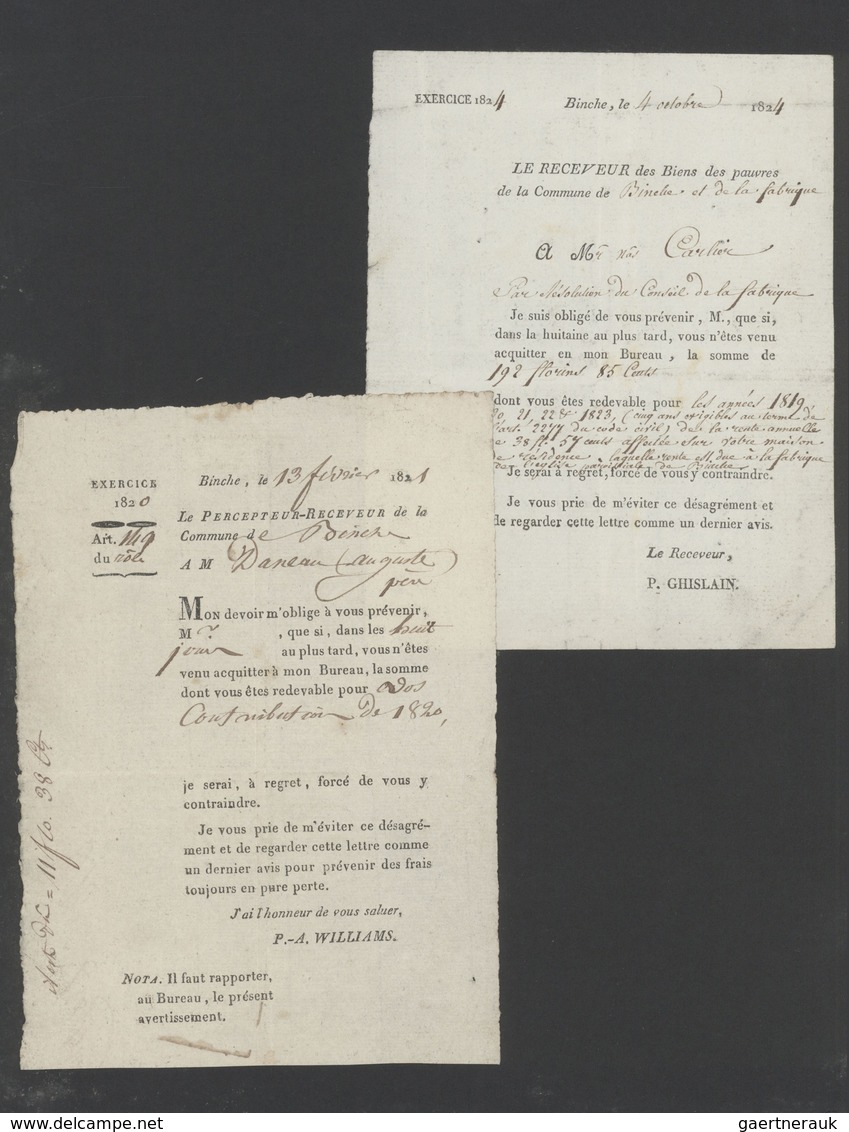 EXERCICE 1824
Binche, le 4 octobre 1824
LE RECEVEUR des Biens des pauvres
de la Commune de Binche et de la fabrique
A Mr Nas Carlier
Par Résolution du Conseil de la fabrique
Je suis obligé de vous prévenir, M., que si,
dans la huitaine au plus tard, vous n'êtes venu
acquitter en mon Bureau, la somme de
192 florins 85 Cents
dont vous êtes redevable pour les années 1819,
20, 21, 22 & 1823, (cinq ans exigibles au terme de
l'art. 2277 du code civil) de la rente annuelle
de 38 fl. 57 cents affectée sur votre maison
de résidence, laquelle rente est due à la fabrique
de l'église paroissiale de Binche
Je serai à regret, forcé de vous y contraindre.
Je vous prie de m'éviter ce désagrément et
de regarder cette lettre comme un dernier avis.
Le Receveur,
P. GHISLAIN.
EXERCICE
1820
Art. 149
du rôle
Binche, le 13 février 1821
LE PERCEPTEUR-RECEVEUR de la
Commune de Binche
A M Daneau (auguste)
père
MON devoir m'oblige à vous prévenir,
Mr. , que si, dans les huit
jours au plus tard, vous n'êtes
venu acquitter à mon Bureau, la somme
dont vous êtes redevable pour vos
Contribution de 1820,
je serai, à regret, forcé de vous y
contraindre.
Je vous prie de m'éviter ce désagré-
ment et de regarder cette lettre comme
un dernier avis pour prévenir des frais
toujours en pure perte.
J'ai l'honneur de vous saluer,
P.-A. WILLIAMS.
NOTA. Il faut rapporter,
au Bureau, le présent
avertissement.
= 11 flo. 38
www.delcampe.net
gaertnerauk